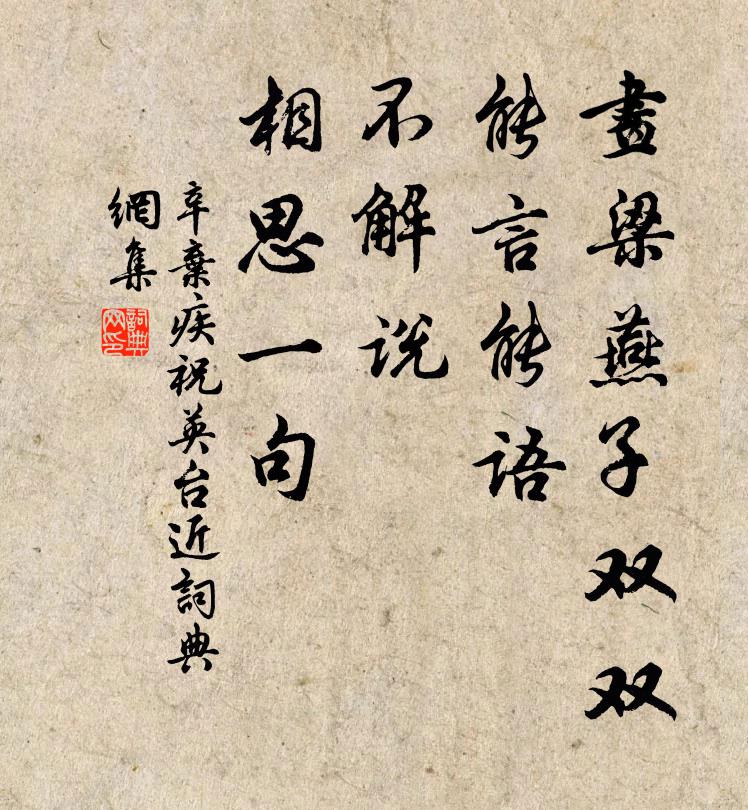 畫梁燕子双双
能言能語
不解説
相思一句
辛棄疾祝英台近詞典
網集
詞典
网印